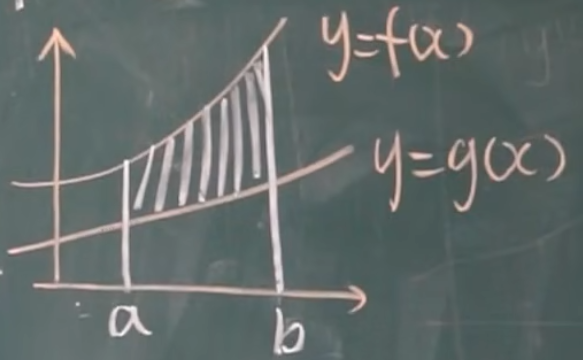 y=f(x)
y=g(x)
a
b